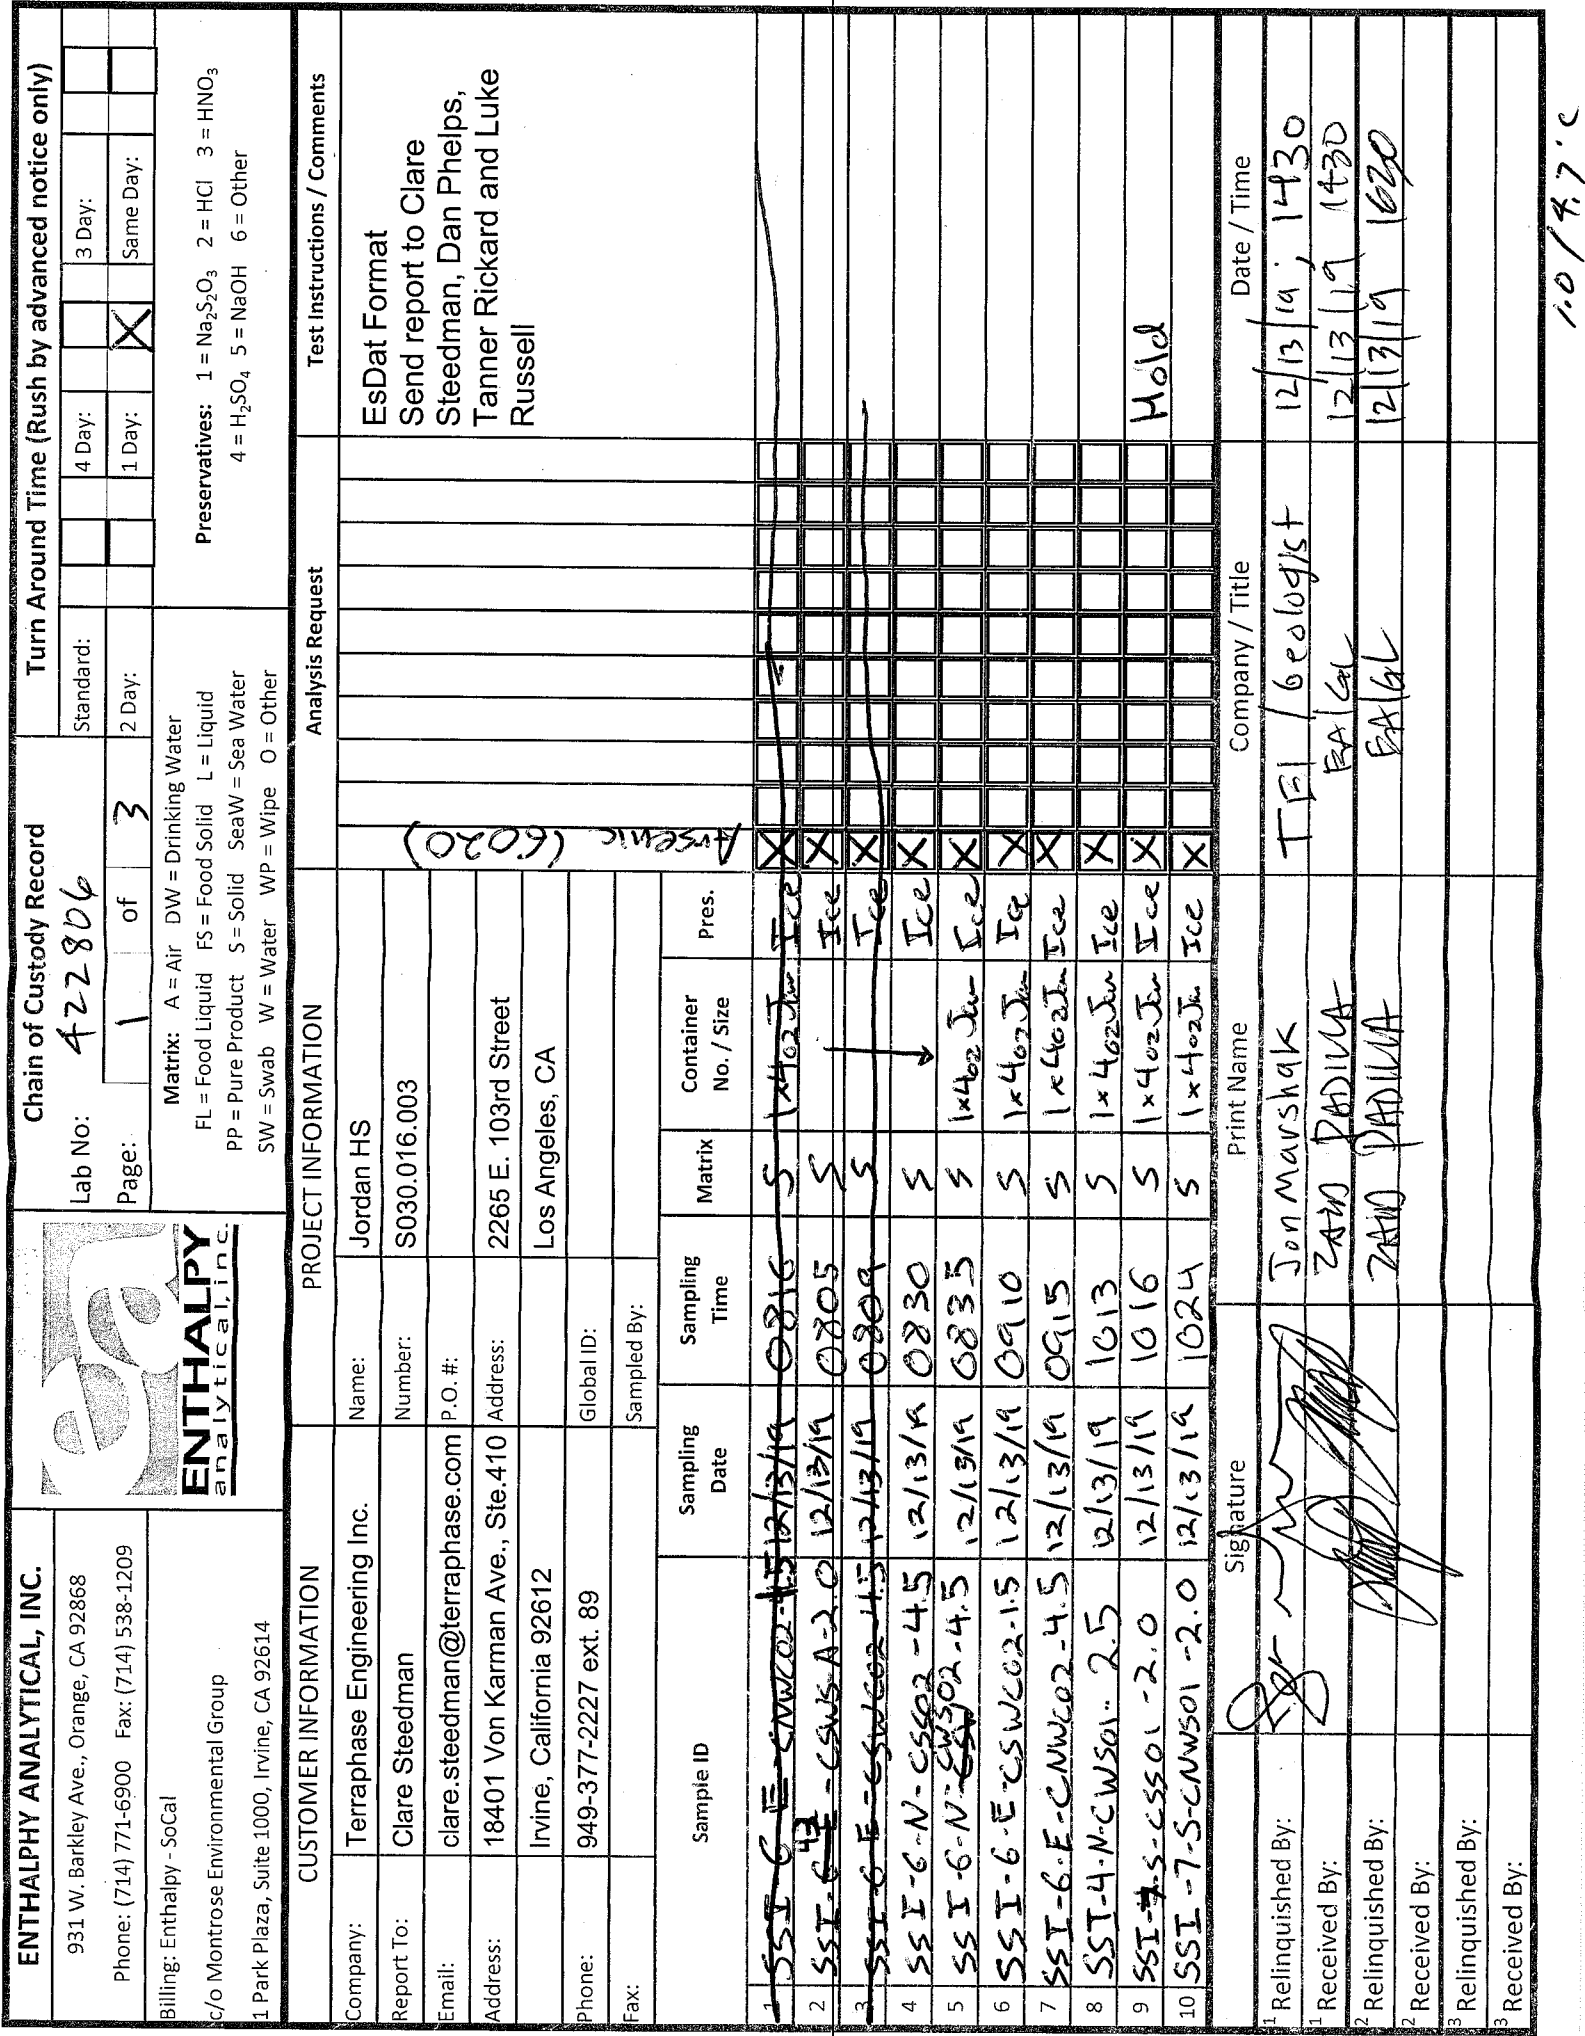 ENTHALPHY ANALYTICAL, INC.
931 W. Barkley Ave., Orange, CA 92868
Phone: (714) 771-6900 Fax: (714) 538-1209
Billing: Enthalpy - SoCal
c/o Montrose Environmental Group
1 Park Plaza, Suite 1000, Irvine, CA 92614
ea
ENTHALPY
analytical, inc.
Chain of Custody Record
Lab No: 422806
Page: 1 of 3
Turn Around Time (Rush by advanced notice only)
Standard: 4 Day: 3 Day:
2 Day: 1 Day: X Same Day:
Matrix: A = Air DW = Drinking Water
FL = Food Liquid FS = Food Solid L = Liquid
PP = Pure Product S = Solid SeaW = Sea Water
SW = Swab W = Water WP = Wipe O = Other
Preservatives: 1 = Na₂S₂O₃ 2 = HCl 3 = HNO₃
4 = H₂SO₄ 5 = NaOH 6 = Other
CUSTOMER INFORMATION
Company: Terraphase Engineering Inc.
Report To: Clare Steedman
Email: clare.steedman@terraphase.com
Address: 18401 Von Karman Ave., Ste.410
Irvine, California 92612
Phone: 949-377-2227 ext. 89
Fax:
PROJECT INFORMATION
Name: Jordan HS
Number: S030.016.003
P.O. #:
Address: 2265 E. 103rd Street
Los Angeles, CA
Global ID:
Sampled By:
Analysis Request
Arsenic (6020)
Test Instructions / Comments
EsDat Format
Send report to Clare
Steedman, Dan Phelps,
Tanner Rickard and Luke
Russell
Sample ID Sampling Date Sampling Time Matrix Container No. / Size Pres.
1 SSI-6-E-CNWC02-4.5 12/13/19 0816 S 1x4oz Jar Ice X
2 SSI-47-CSWS-A-2.0 12/13/19 0805 S Ice X
3 SSI-6-E-CSWC02-4.5 12/13/19 0809 S Ice X
4 SSI-6-N-CSS02-4.5 12/13/19 0830 S Ice X
5 SSI-6-N-CWS02-4.5 12/13/19 0835 S 1x4oz Jar Ice X
6 SSI-6-E-CSWC02-1.5 12/13/19 0910 S 1x4oz Jar Ice X
7 SSI-6-E-CNWC02-4.5 12/13/19 0915 S 1x4oz Jar Ice X
8 SSI-4-N-CWS01-2.5 12/13/19 1013 S 1x4oz Jar Ice X
9 SSI-7-S-CSS01-2.0 12/13/19 1016 S 1x4oz Jar Ice X Hold
10 SSI-7-S-CNWS01-2.0 12/13/19 1024 S 1x4oz Jar Ice X
Signature Print Name Company / Title Date / Time
1 Relinquished By: Jon Marshak TEI / Geologist 12/13/19; 1430
1 Received By: ZAID PADILLA EA/GL 12/13/19 1430
2 Relinquished By: ZAID PADILLA EA/GL 12/13/19 1620
2 Received By:
3 Relinquished By:
3 Received By:
1.0/4.7°C